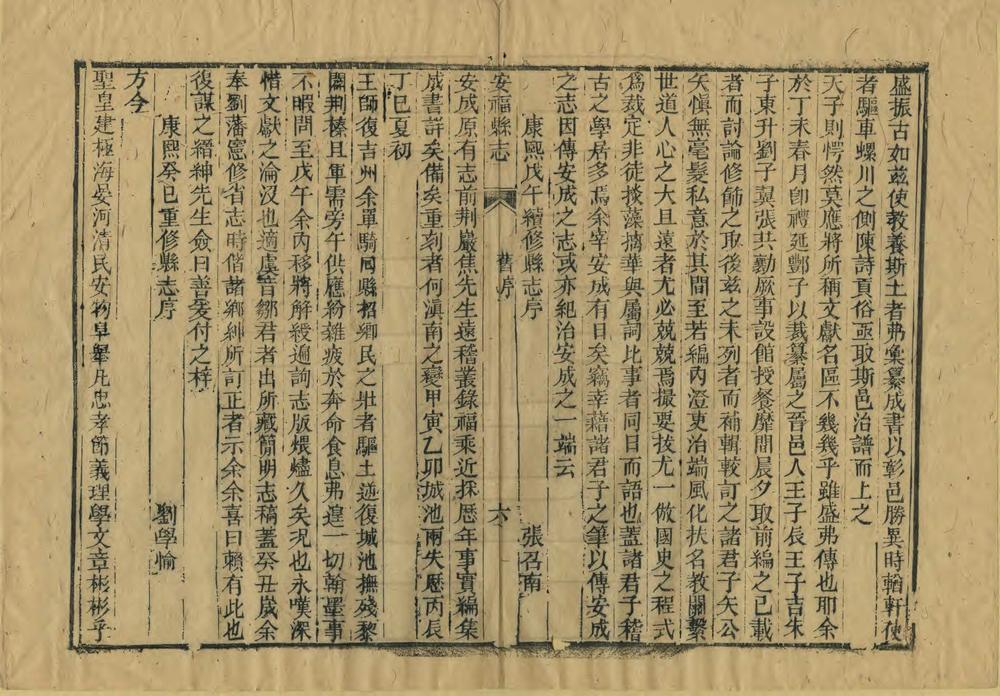 盛振古如茲使教養斯土者弗彙纂成書以彰邑勝異時輶軒使
者驅車螺川之側陳詩貢俗亟取斯邑治譜而上之
天子則愕然莫應將所稱文獻名區不幾幾乎雖盛弗傳也耶余
於丁未春月卽禮延酆子以裁纂屬之晉邑人王子辰王子吉朱
子東升劉子巽張共勷厥事設館授餐靡間晨夕取前編之已載
者而討論修飾之取後茲之未列者而補輯較訂之諸君子矢公
矢愼無毫髮私意於其間至若編內澄吏治端風化扶名教關繫
世道人心之大且遠者尤必兢兢焉撮要拔尤一倣國史之程式
爲裁定非徒掞藻摛華與屬詞比事者同日而語也蓋諸君子稽
古之學居多焉余宰安成有日矣竊幸藉諸君子之筆以傳安成
之志因傳安成之志或亦紀治安成之一端云
康熙戊午續修縣志序 張召南
安福縣志 舊序 六
安成原有志前荆巖焦先生遠稽叢錄福乘近採歷年事實編集
成書詳矣備矣重刻者何滇南之變甲寅乙卯城池兩失歷丙辰
丁巳夏初
王師復吉州余單騎囘縣招鄉民之壯者驅土逆復城池撫殘黎
闢荆榛且軍需旁午供應紛雜疲於奔命食息弗遑一切翰墨事
不暇問至戊午余內移將解綬遍詢志版煨燼久矣况也永嘆深
惜文獻之淪沒也適虞吉鄒君者出所藏簡明志稿蓋癸丑歲余
奉劉藩憲修省志時偕諸鄉紳所訂正者示余余喜曰賴有此也
復謀之縉紳先生僉曰善爰付之梓
康熙癸巳重修縣志序 劉學愉
方今
聖皇建極海晏河清民安物阜舉凡忠孝節義理學文章彬彬乎